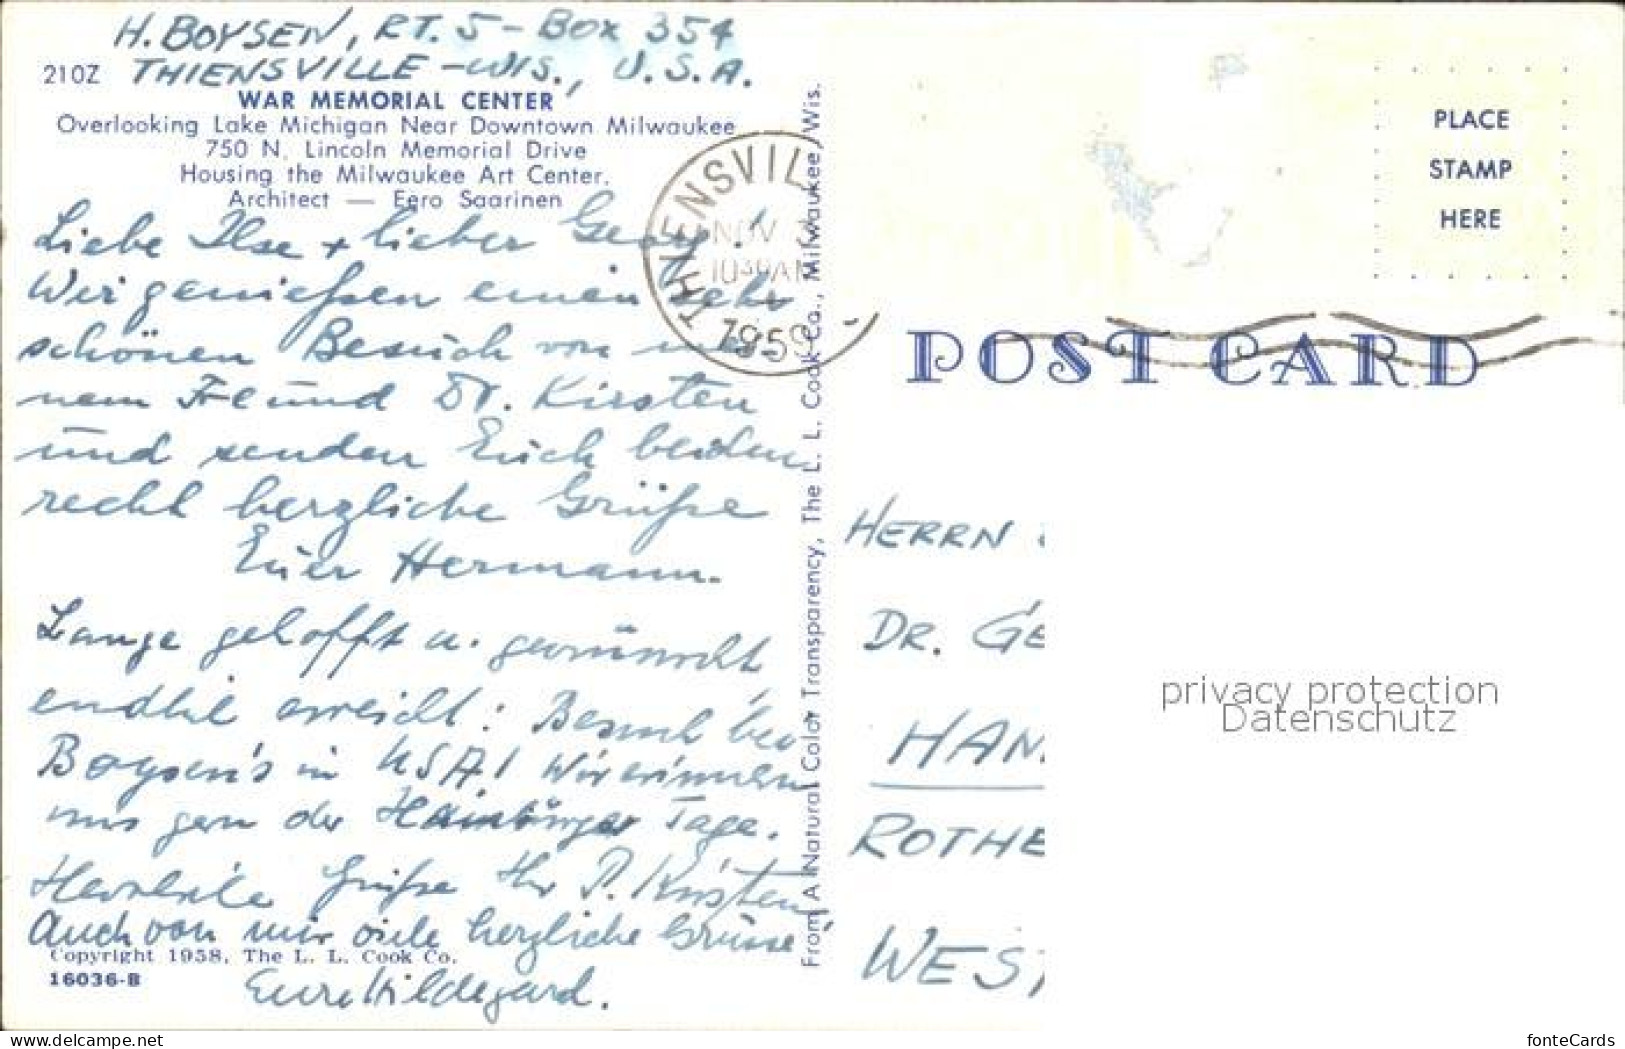 H. BOYSEN, RT. 5 - Box 354
THIENSVILLE - WIS., U.S.A.
210Z
WAR MEMORIAL CENTER
Overlooking Lake Michigan Near Downtown Milwaukee
750 N. Lincoln Memorial Drive
Housing the Milwaukee Art Center.
Architect — Eero Saarinen
Liebe Ilse + lieber Georg!
Wir genießen einen sehr
schönen Besuch von mei-
nem Freund Dr. Kirsten
und senden Euch beiden
recht herzliche Grüße
Euer Hermann.
Lange gehofft u. gewünscht
endlich erreicht: Besuch bei
Boysen's in USA! Wir erinnern
uns gern der Hamburger Tage.
Herzliche Grüße Ihr P. Kirsten
Auch von mir viele herzliche Grüsse
Eure Hildegard.
Copyright 1958, The L. L. Cook Co.
16036-B
From A Natural Color Transparency, The L. L. Cook Co., Milwaukee, Wis.
THIENSVIL
NOV
1030AM
1959
PLACE
STAMP
HERE
POST CARD
HERRN
DR. GE
HAN
ROTHE
WEST
privacy protection
Datenschutz
www.delcampe.net
fonteCards